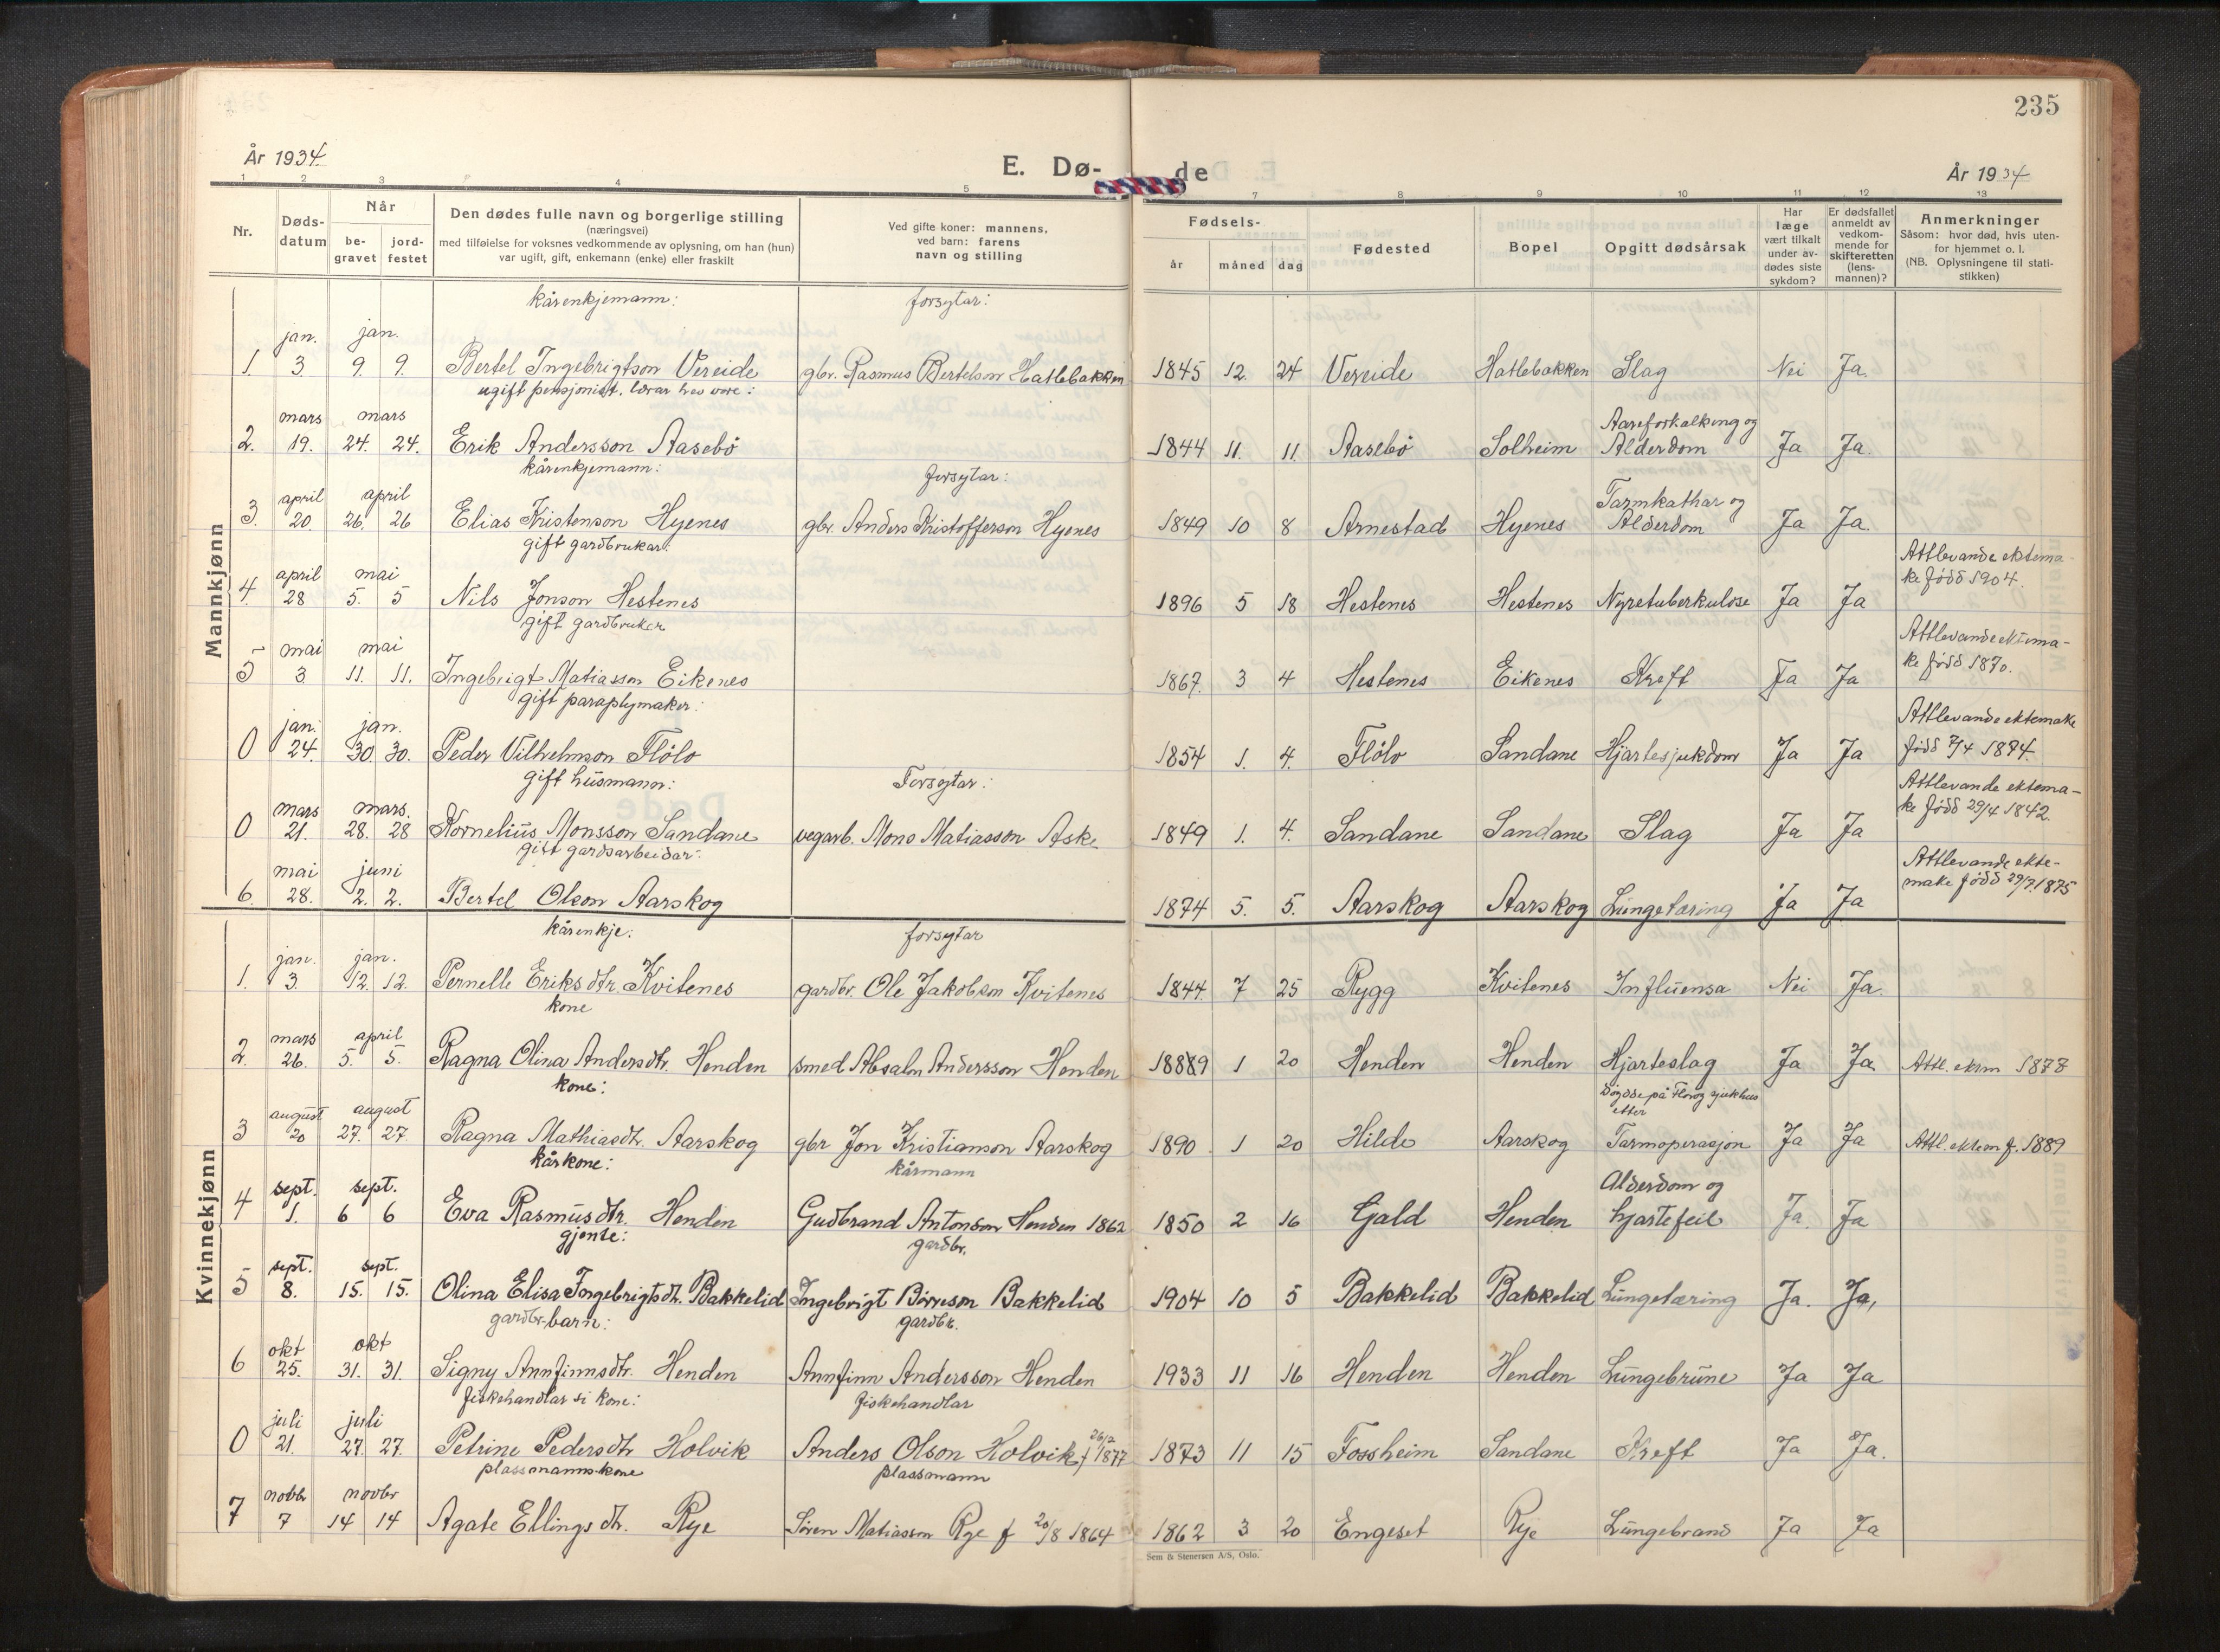 235
År 1934.
E. Dø-
de
År 1934
1 2 3 4 5 7 8 9 10 11 12 13
Nr.
Døds-
datum
Når
be-
gravet
jord-
festet
Den dødes fulle navn og borgerlige stilling
(næringsvei)
med tilføielse for voksnes vedkommende av oplysning, om han (hun)
var ugift, gift, enkemann (enke) eller fraskilt
Ved gifte koner: mannens,
ved barn: farens
navn og stilling
Fødsels-
år måned dag
Fødested
Bopel
Opgitt dødsårsak
Har
læge
vært tilkalt
under av-
dødes siste
sykdom?
Er dødsfallet
anmeldt av
vedkom-
mende for
skifteretten
(lens-
mannen)?
Anmerkninger
Såsom: hvor død, hvis uten-
for hjemmet o. l.
(NB. Oplysningene til stati-
stikken)
Mannkjønn
kårenkjemann: forsytar:
jan. jan.
1. 3. 9. 9. Bertel Ingebrigtson Vereide gbr. Rasmus Bertelson Hatlebakken 1845 12. 24 Vereide Hatlebakken Slag Nei Ja.
ugift pensjonist, lærar
mars mars Aareforkalking og
2. 19. 24. 24. Erik Andersson Aasebö 1844 11. 11. Aasebö Solheim Alderdom Ja Ja.
kårenkjemann: forsytar:
april april Tarmkathar og
3. 20. 26. 26 Elias Kristenson Hyenes gbr. Anders Kristofferson Hyenes 1849 10 8 Arnestad Hyenes Alderdom Ja Ja.
gift gardbrukar: Attlevande ektema-
april mai ke född 1904.
4. 28 5. 5 Nils Jonson Hestenes 1896 5 18 Hestenes Hestenes Nyretuberkulose Ja Ja
gift gardbruker Attlevande ektema-
mai mai ke född 1870.
5 3 11. 11. Ingebrigt Matiasson Eikenes 1867. 3 4 Hestenes Eikenes Kreft Ja Ja
gift paraplymaker: Attlevande ektemake
jan. jan. född 7/4 1874.
0 24. 30 30. Peder Vilhelmson Flölo 1854 1. 4. Flölo Sandane Hjartesjukdom Ja Ja
gift husmann: Forsytar: Attlevande ektema-
mars mars. ke född 29/4 1842.
0 21. 28. 28 Kornelius Monsson Sandane vegarb. Mons Matiasson Aske 1849 1. 4. Sandane Sandane Slag Ja Ja
gift gardsarbeidar: Attlevande ekte-
mai juni make född 29/7.1875
6. 28. 2. 2. Bertel Olson Aarskog 1874 5. 5. Aarskog Aarskog Lungetæring Ja Ja
Kvinnekjønn
kårenkje: forsytar
jan. jan.
1. 3. 12. 12. Pernelle Eriksdtr. Kvitenes gardbr. Ole Jakobson Kvitenes 1844 7 25 Rygg Kvitenes Influensa Nei Ja.
kone
mars april
2. 26. 5. 5. Ragna Olina Andersdtr. Henden smed Absalon Andersson Henden 18889 1 20 Henden Henden Hjarteslag Ja Ja Attl. ektm 1878
kone: Döydde på Florö sjukhus
august august etter
3 20 27. 27. Ragna Mathiasdtr. Aarskog gbr Jon Kristianson Aarskog 1890 1 20 Hilde Aarskog Tarmoperasjon Ja Ja Attl. ektem f. 1889
kårkone: kårmann
sept. sept. Alderdom og
4 1. 6 6 Eva Rasmusdtr. Henden Gudbrand Antonson Henden 1862 1850 2 16 Gjald Henden hjartefeil Ja. Ja
gjente: gardbr.
sept. sept.
5 8. 15. 15. Olina Elisa Ingebrigtsdtr. Bakkelid Ingebrigt Börreson Bakkelid 1904 10 5 Bakkelid Bakkelid Lungetæring Ja. Ja,
gardbr.barn: gardbr.
okt okt
6 25. 31. 31. Signy Annfinnsdtr. Henden Annfinn Andersson Henden 1933 11 16 Henden Henden Lungebrune Ja Ja
fiskehandlar si kone: fiskehandlar
juli juli 26/2
0 21. 27. 27. Petrine Pedersdtr Holvik Anders Olson Holvik f 1877 1873 11 15 Fossheim Sandane Kreft Ja Ja.
plassmannskone plassmann
novbr novbr
7 7 14 14 Agate Ellingsdtr. Rye Sören Matiasson Rye f 20/8 1864 1862 3 20 Engeset Rye Lungebrand Ja Ja
Sem & Stenersen A/S, Oslo.